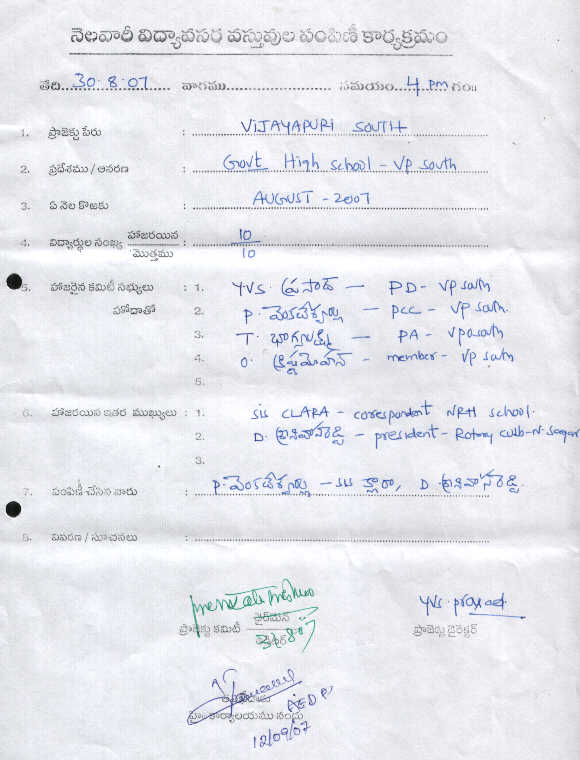 నెలవారీ విద్యావసర వస్తువుల పంపిణీ కార్యక్రమం
తేది..30.8.07 వారము.............. సమయం..4 pm గం॥
1. ప్రాజెక్టు పేరు : VIJAYAPURI SOUTH
2. ప్రదేశము / ఆవరణ : Govt High school - VP south
3. ఏ నెల కొఱకు : AUGUST - 2007
4. విద్యార్థుల సంఖ్య హాజరయిన / మొత్తము : 10 / 10
5. హాజరైన కమిటీ సభ్యులు : 1. YVS. ప్రసాద్ — PD - VP south
హోదాతో 2. P. వెంకటేశ్వర్లు — PCC - VP south.
3. T. భాగ్యలక్ష్మి — PA - VP south
4. O. కృష్ణమోహన్ - member - VP south
5.
6. హాజరయిన ఇతర ముఖ్యులు : 1. sis CLARA - correspondent NRH school.
2. D. శ్రీనివాసరెడ్డి - president - Rotary club-N. Sagar
3.
7. పంపిణీ చేసిన వారు : P. వెంకటేశ్వర్లు - sis క్లారా, D. శ్రీనివాసరెడ్డి.
8. వివరణ / సూచనలు :
YVS. prasad
ప్రాజెక్టు కమిటీ చైర్మన్
ప్రాజెక్టు డైరెక్టర్
కార్యాలయము నందు
12/09/07